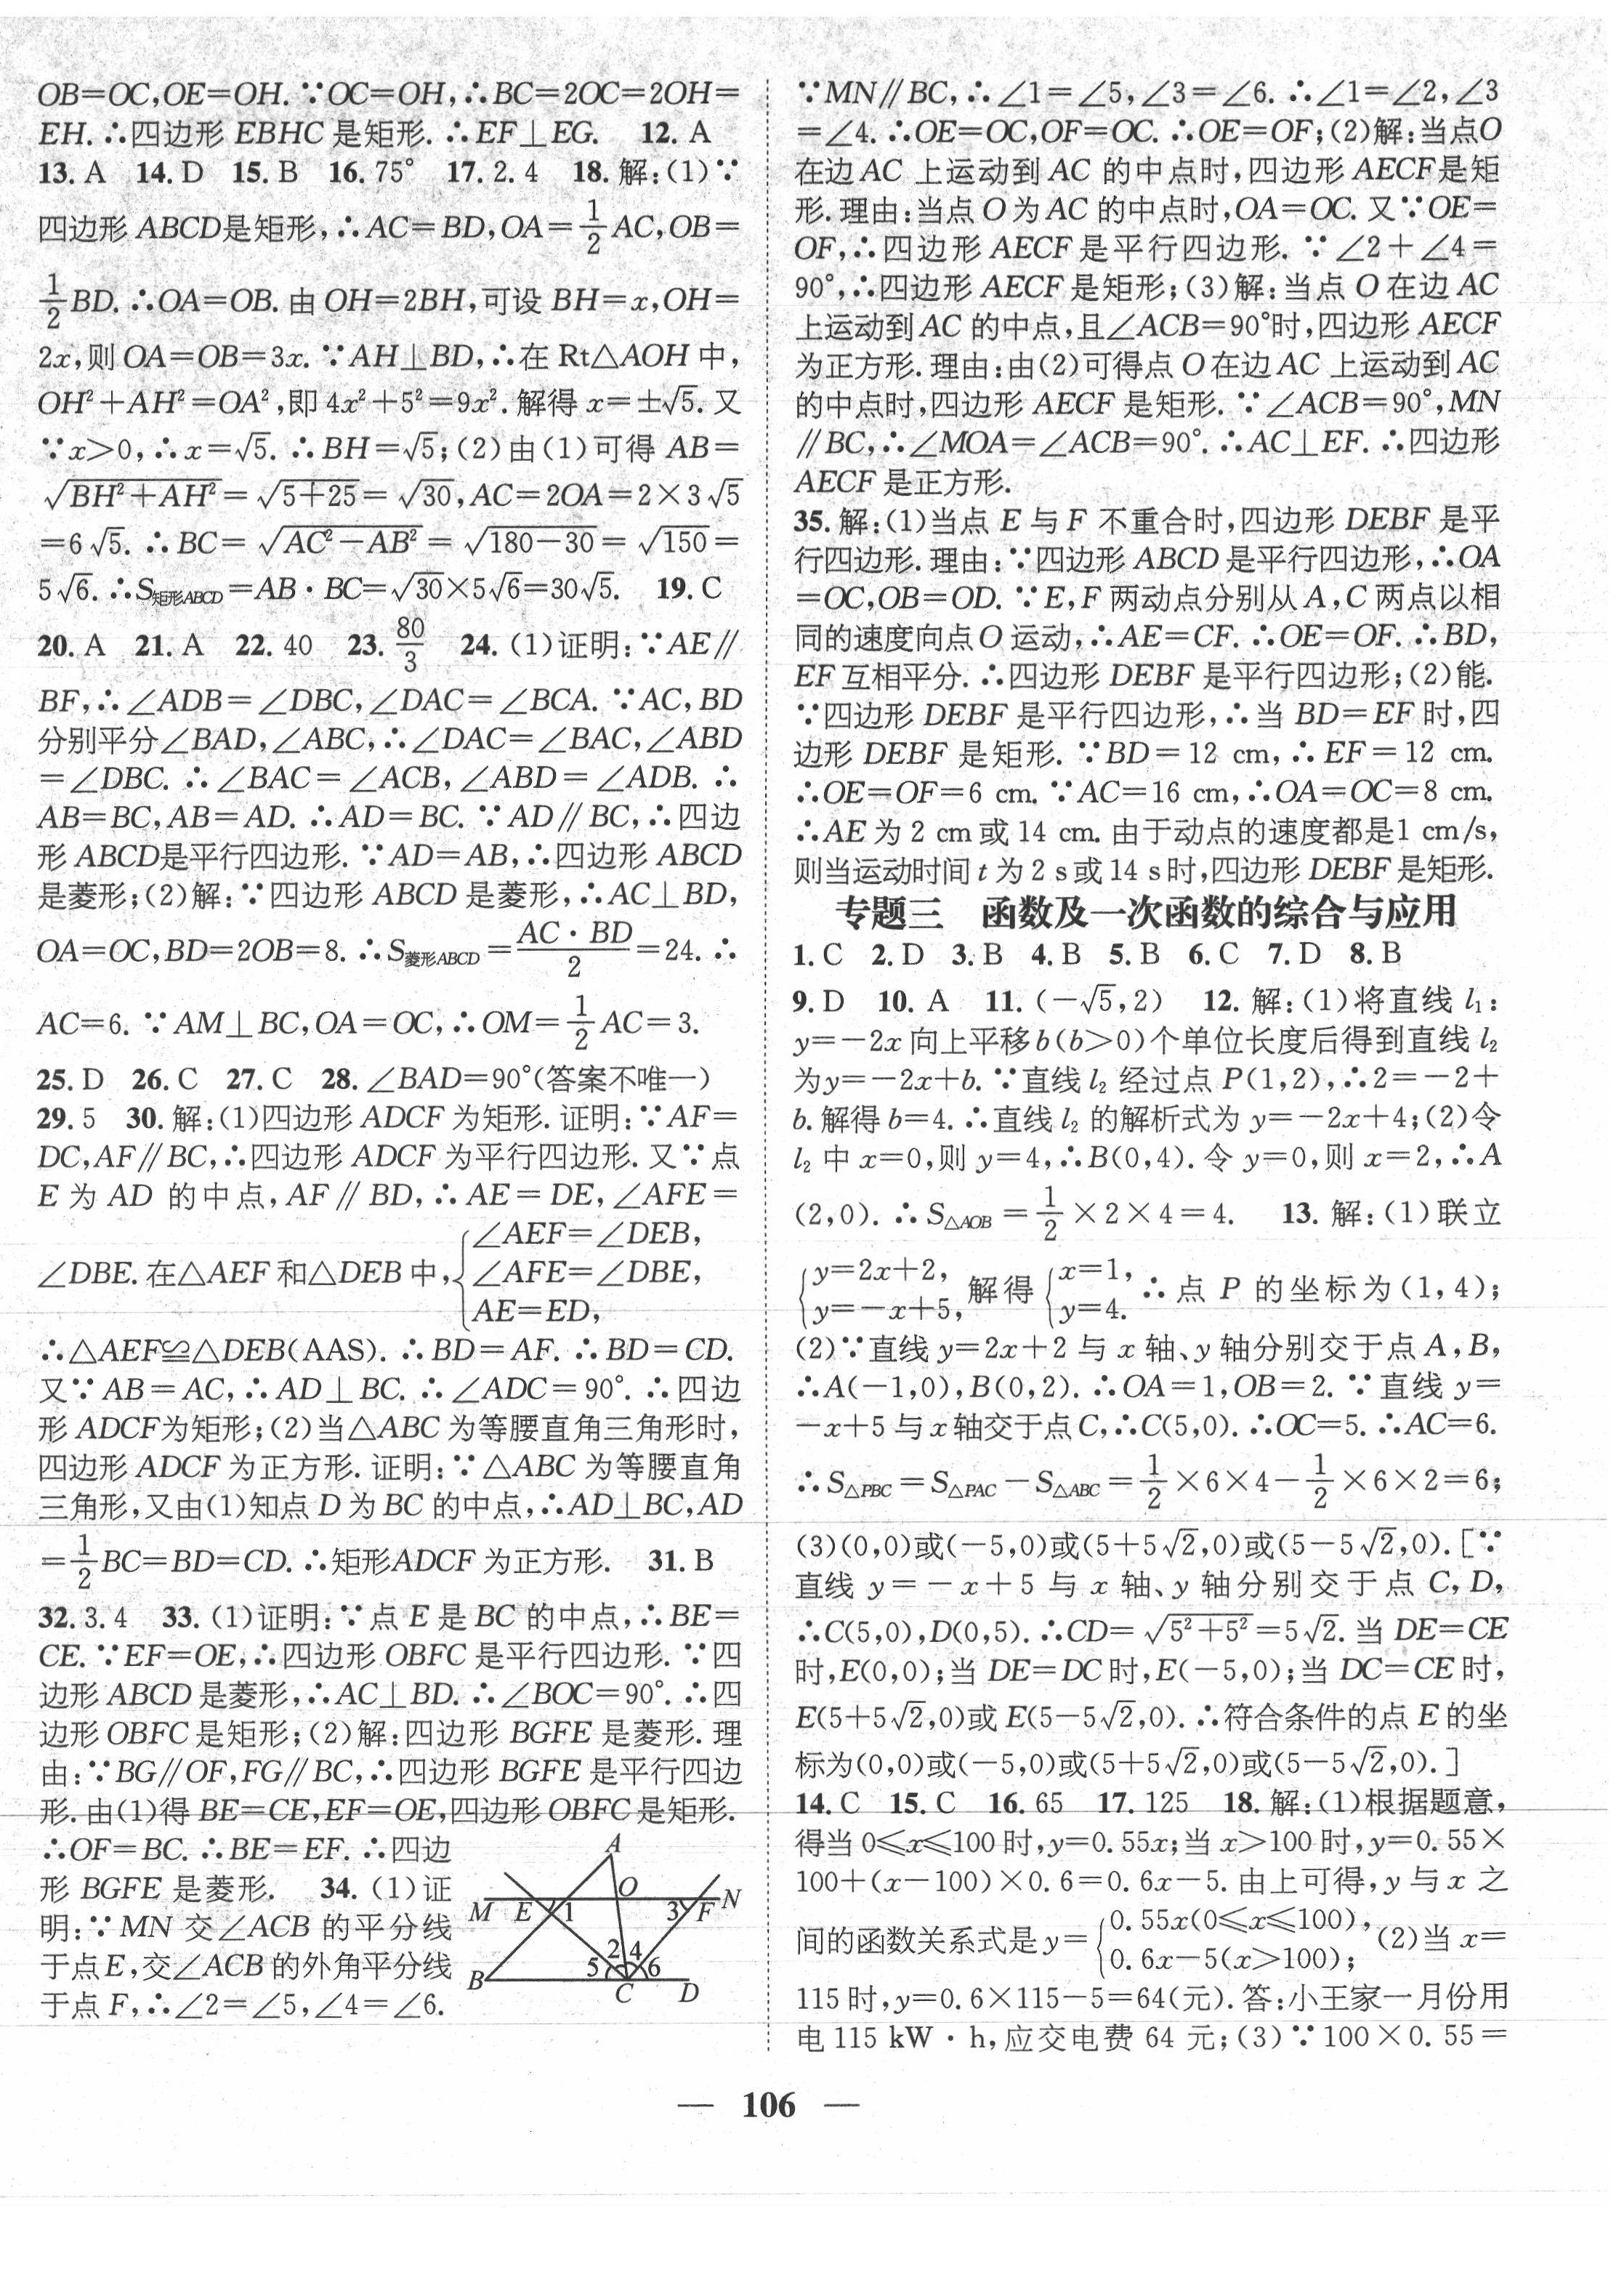 OB=OC,OE=OH.∵OC=OH,∴BC=2OC=2OH=
EH.∴四边形 EBHC 是矩形.∴EF⊥EG. 12. A
13. A 14. D 15. B 16. 75° 17. 2.4 18. 解:(1)∵
四边形 ABCD是矩形,∴AC=BD,OA=1/2 AC,OB=
1/2 BD.∴OA=OB.由 OH=2BH,可设 BH=x,OH=
2x,则 OA=OB=3x.∵AH⊥BD,∴在 Rt△AOH 中,
OH²+AH²=OA²,即 4x²+5²=9x².解得 x=±√5.又
∵x>0,∴x=√5.∴BH=√5;(2)由(1)可得 AB=
√(BH²+AH²)=√(5+25)=√30,AC=2OA=2×3√5
=6√5.∴BC=√(AC²-AB²)=√(180-30)=√150=
5√6.∴S矩形ABCD=AB·BC=√30×5√6=30√5. 19. C
20. A 21. A 22. 40 23. 80/3 24. (1)证明:∵AE∥
BF,∴∠ADB=∠DBC,∠DAC=∠BCA.∵AC,BD
分别平分∠BAD,∠ABC,∴∠DAC=∠BAC,∠ABD
=∠DBC.∴∠BAC=∠ACB,∠ABD=∠ADB.∴
AB=BC,AB=AD.∴AD=BC.∵AD∥BC,∴四边
形 ABCD是平行四边形.∵AD=AB,∴四边形 ABCD
是菱形;(2)解:∵四边形 ABCD 是菱形,∴AC⊥BD,
OA=OC,BD=2OB=8.∴S菱形ABCD=AC·BD/2=24.∴
AC=6.∵AM⊥BC,OA=OC,∴OM=1/2 AC=3.
25. D 26. C 27. C 28. ∠BAD=90°(答案不唯一)
29. 5 30. 解:(1)四边形 ADCF 为矩形.证明:∵AF=
DC,AF∥BC,∴四边形 ADCF 为平行四边形.又∵点
E 为 AD 的中点,AF∥BD,∴AE=DE,∠AFE=
∠DBE.在△AEF 和△DEB 中,{∠AEF=∠DEB,
∠AFE=∠DBE,
AE=ED,
∴△AEF≌△DEB(AAS).∴BD=AF.∴BD=CD.
又∵AB=AC,∴AD⊥BC.∴∠ADC=90°.∴四边
形 ADCF为矩形;(2)当△ABC 为等腰直角三角形时,
四边形 ADCF 为正方形.证明:∵△ABC 为等腰直角
三角形,又由(1)知点 D 为 BC 的中点,∴AD⊥BC,AD
=1/2 BC=BD=CD.∴矩形ADCF 为正方形. 31. B
32. 3.4 33. (1)证明:∵点 E 是 BC 的中点,∴BE=
CE.∵EF=OE,∴四边形 OBFC 是平行四边形.∵四
边形 ABCD 是菱形,∴AC⊥BD.∴∠BOC=90°.∴四
边形 OBFC 是矩形;(2)解:四边形 BGFE 是菱形.理
由:∵BG∥OF,FG∥BC,∴四边形 BGFE 是平行四边
形.由(1)得 BE=CE,EF=OE,四边形 OBFC 是矩形.
∴OF=BC.∴BE=EF.∴四边
形 BGFE 是菱形. 34. (1)证
明:∵MN 交∠ACB 的平分线
于点E,交∠ACB的外角平分线
于点 F,∴∠2=∠5,∠4=∠6.
A
O
M E 1 3 F N
2 4
5 6
B C D
∵MN∥BC,∴∠1=∠5,∠3=∠6.∴∠1=∠2,∠3
=∠4.∴OE=OC,OF=OC.∴OE=OF;(2)解:当点O
在边 AC 上运动到 AC 的中点时,四边形 AECF是矩
形.理由:当点 O 为 AC 的中点时,OA=OC.又∵OE=
OF,∴四边形 AECF 是平行四边形.∵∠2+∠4=
90°,∴四边形 AECF 是矩形;(3)解:当点 O 在边 AC
上运动到 AC 的中点,且∠ACB=90°时,四边形 AECF
为正方形.理由:由(2)可得点 O 在边 AC 上运动到 AC
的中点时,四边形 AECF 是矩形.∵∠ACB=90°,MN
∥BC,∴∠MOA=∠ACB=90°.∴AC⊥EF.∴四边形
AECF 是正方形.
35. 解:(1)当点 E 与 F 不重合时,四边形 DEBF 是平
行四边形.理由:∵四边形 ABCD 是平行四边形,∴OA
=OC,OB=OD.∵E,F 两动点分别从 A,C 两点以相
同的速度向点 O 运动,∴AE=CF.∴OE=OF.∴BD,
EF 互相平分.∴四边形 DEBF 是平行四边形;(2)能.
∵四边形 DEBF 是平行四边形,∴当 BD=EF 时,四
边形 DEBF 是矩形.∵BD=12 cm,∴EF=12 cm.
∴OE=OF=6 cm.∵AC=16 cm,∴OA=OC=8 cm.
∴AE 为 2 cm 或 14 cm.由于动点的速度都是1 cm/s,
则当运动时间 t 为 2 s或 14 s时,四边形 DEBF 是矩形.
专题三 函数及一次函数的综合与应用
1. C 2. D 3. B 4. B 5. B 6. C 7. D 8. B
9. D 10. A 11. (-√5,2) 12. 解:(1)将直线 l₁:
y=-2x 向上平移 b(b>0)个单位长度后得到直线 l₂
为y=-2x+b.∵直线 l₂ 经过点 P(1,2),∴2=-2+
b.解得 b=4.∴直线 l₂ 的解析式为 y=-2x+4;(2)令
l₂ 中 x=0,则 y=4,∴B(0,4).令 y=0,则 x=2,∴A
(2,0).∴S△AOB=1/2×2×4=4. 13. 解:(1)联立
{y=2x+2, y=-x+5, 解得{x=1, y=4. ∴点 P 的坐标为(1,4);
(2)∵直线 y=2x+2 与 x 轴、y 轴分别交于点 A,B,
∴A(-1,0),B(0,2).∴OA=1,OB=2.∵直线 y=
-x+5 与 x 轴交于点 C,∴C(5,0).∴OC=5.∴AC=6.
∴S△PBC=S△PAC-S△ABC=1/2×6×4-1/2×6×2=6;
(3)(0,0)或(-5,0)或(5+5√2,0)或(5-5√2,0).[∵
直线 y=-x+5 与 x 轴、y 轴分别交于点 C,D,
∴C(5,0),D(0,5).∴CD=√(5²+5²)=5√2.当 DE=CE
时,E(0,0);当 DE=DC 时,E(-5,0);当 DC=CE 时,
E(5+5√2,0)或 E(5-5√2,0).∴符合条件的点 E 的坐
标为(0,0)或(-5,0)或(5+5√2,0)或(5-5√2,0).]
14. C 15. C 16. 65 17. 125 18. 解:(1)根据题意,
得当 0≤x≤100 时,y=0.55x;当 x>100 时,y=0.55×
100+(x-100)×0.6=0.6x-5.由上可得,y 与 x 之
间的函数关系式是 y={0.55x(0≤x≤100), 0.6x-5(x>100); (2)当 x=
115 时,y=0.6×115-5=64(元).答:小王家一月份用
电 115 kW·h,应交电费 64 元;(3)∵100×0.55=
— 106 —